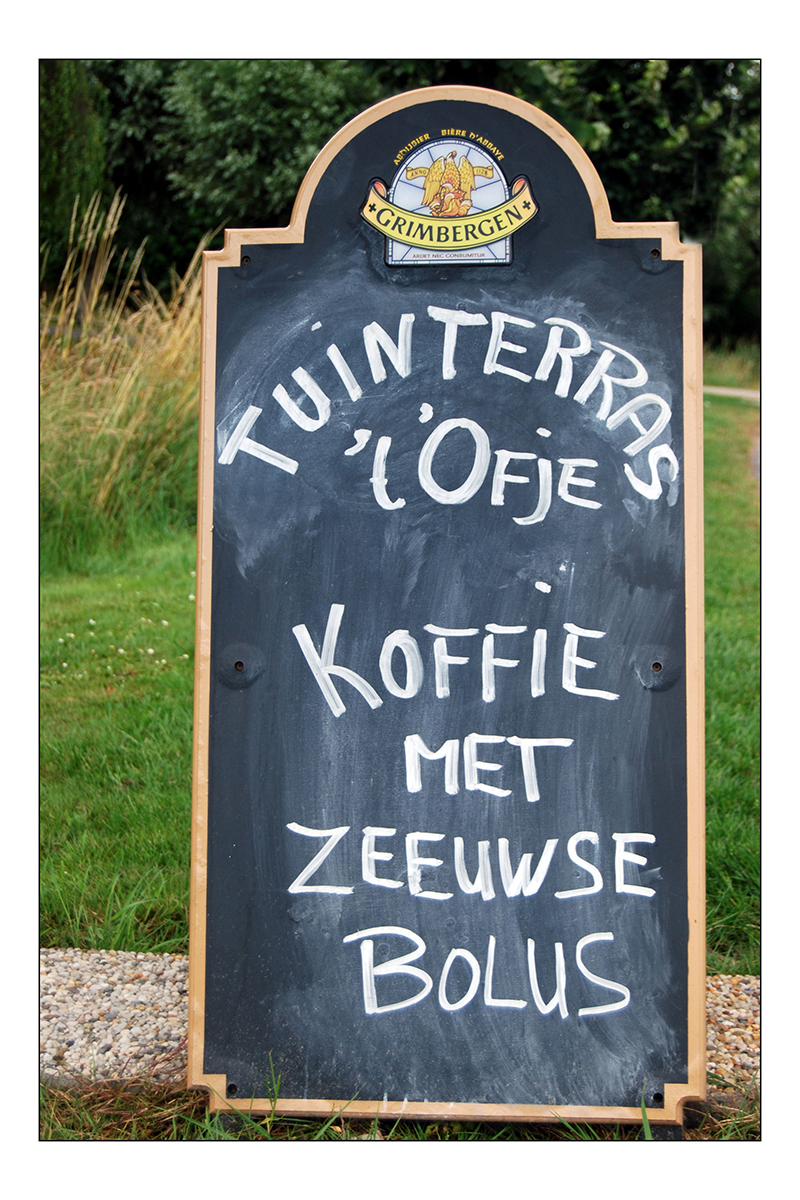 ABDIJBIER BIÈRE D'ABBAYE
ANNO 1128
GRIMBERGEN
ARDET NEC CONSUMITUR
TUINTERRAS
't 'Ofje
KOFFIE
MET
ZEEUWSE
BOLUS